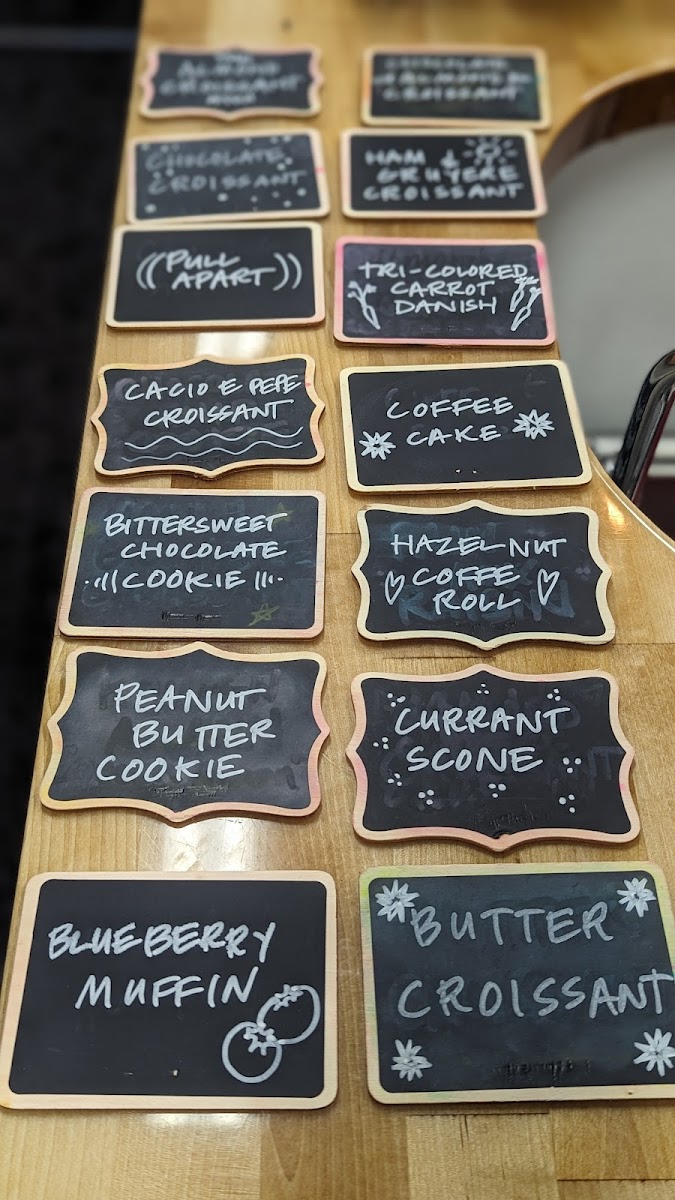 ALMOND
CROISSANT
CHOCOLATE
ALMOND
CROISSANT
CHOCOLATE
CROISSANT
HAM &
GRUYERE
CROISSANT
((PULL
APART))
TRI-COLORED
CARROT
DANISH
CACIO E PEPE
CROISSANT
COFFEE
CAKE
BITTERSWEET
CHOCOLATE
COOKIE
HAZELNUT
COFFE
ROLL
PEANUT
BUTTER
COOKIE
CURRANT
SCONE
BLUEBERRY
MUFFIN
BUTTER
CROISSANT